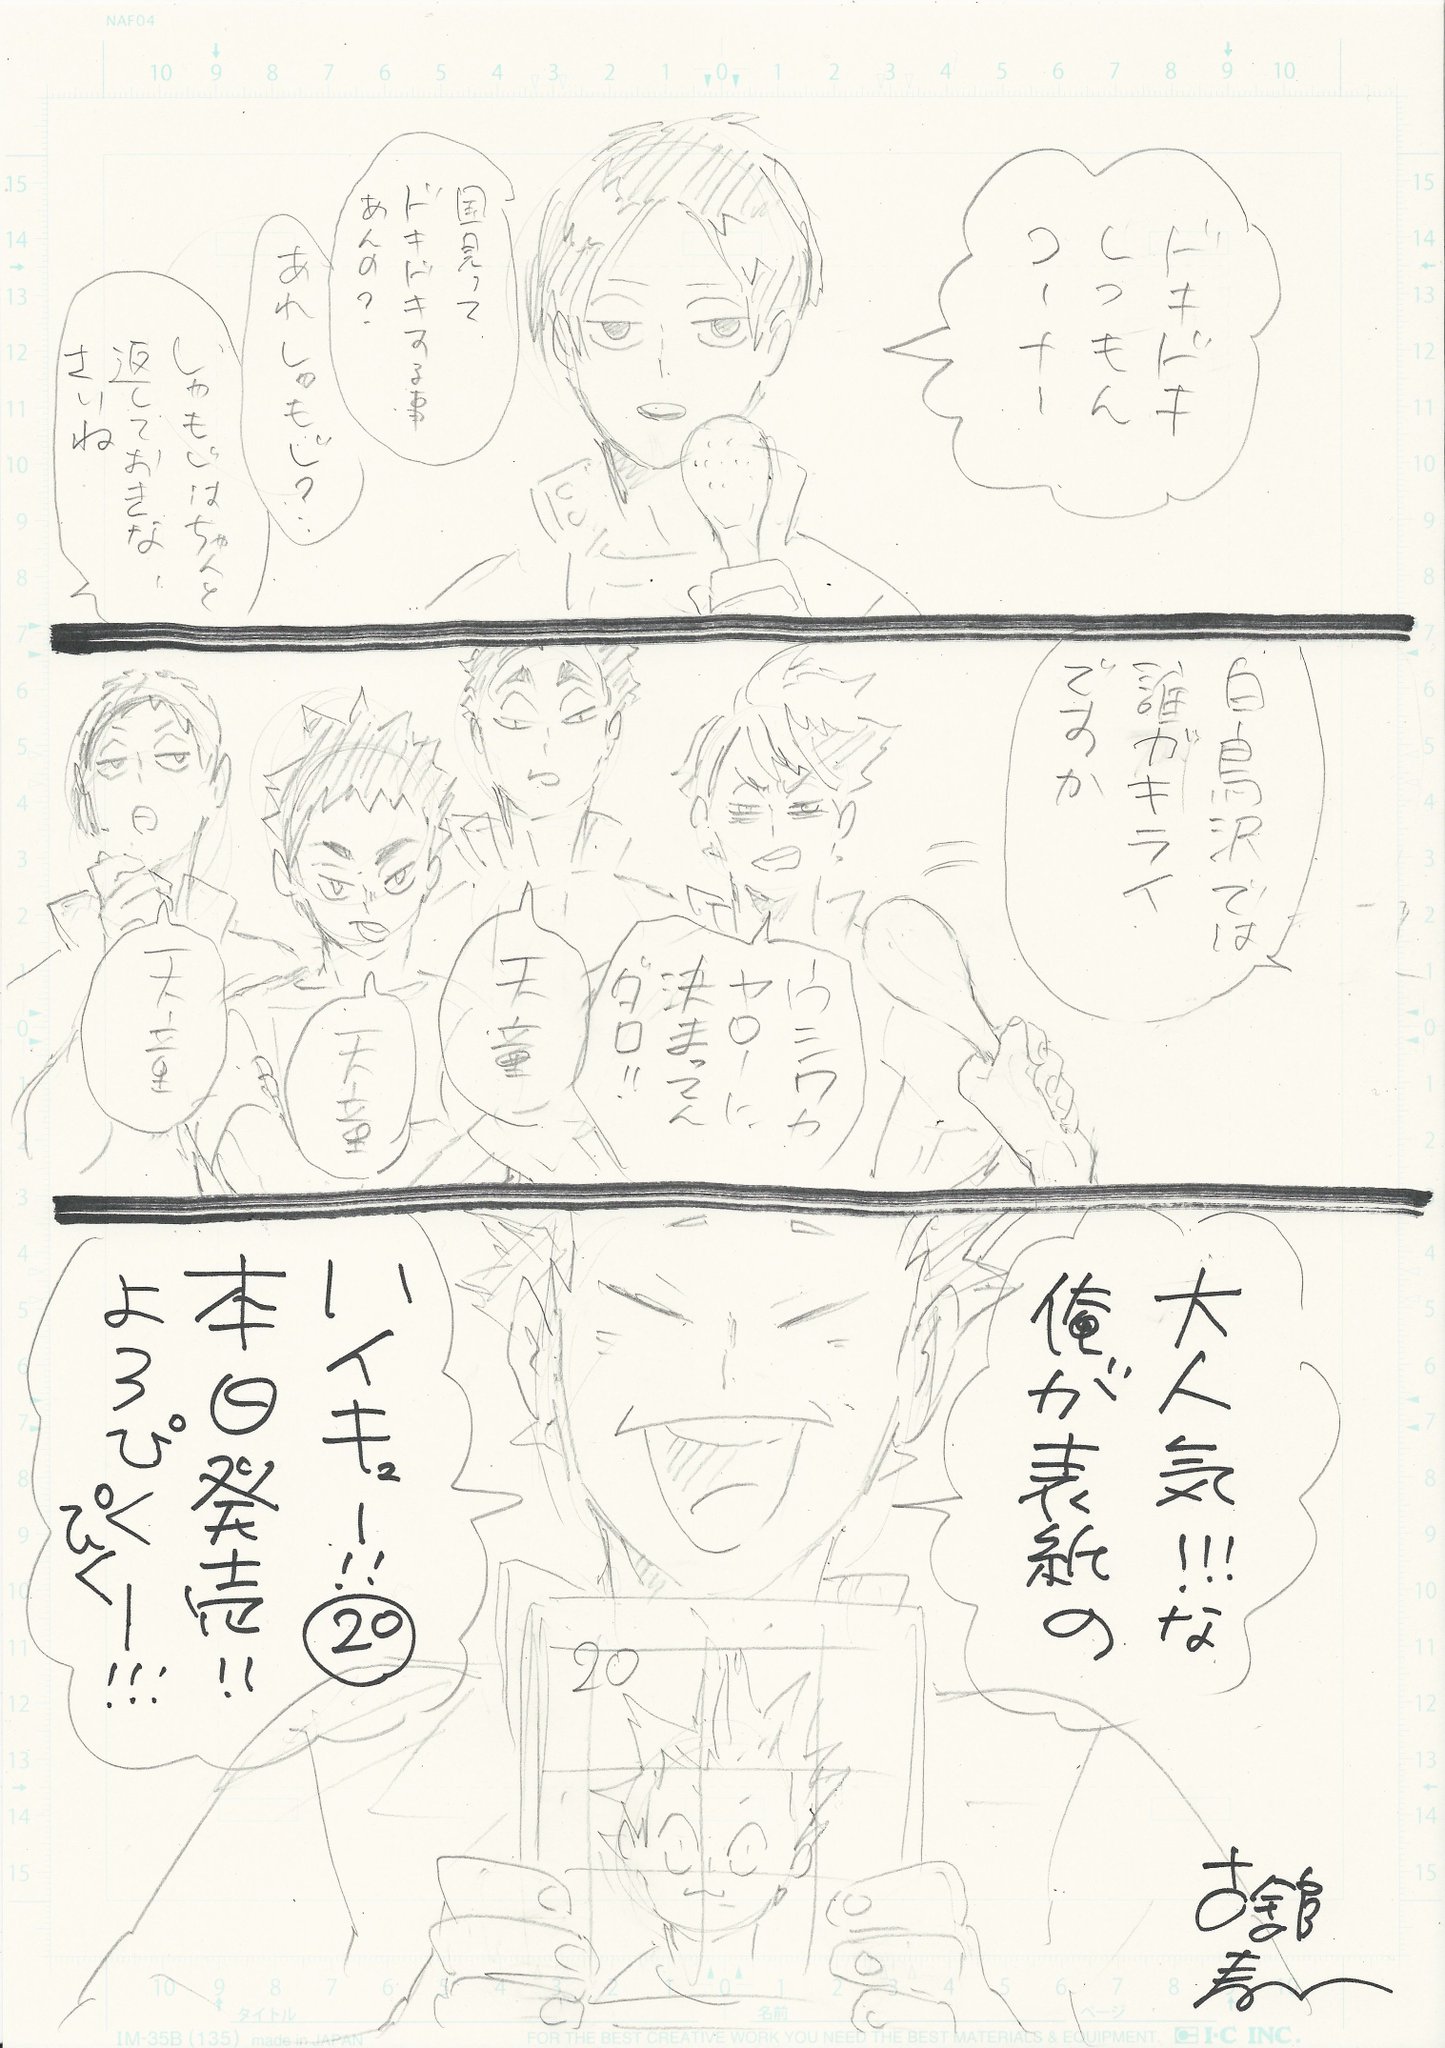 NAF04
ドキドキ
しつもん
コーナー
国見って
ドキドキする事
あんの?
あれしゃもじ?
しゃもじはちゃんと
返しておきな
さいね
白鳥沢では
誰がキライ
ですか
ウシワカ
ヤローに
決まってん
ダロ!!
天童
天童
天童
大人気!!!な
俺が表紙の
ハイキュー!!⑳
本日発売!!
よろぴく
ぴくー!!!
20
古舘
春一
タイトル
名前
ページ
IM-35B (135) made in JAPAN
FOR THE BEST CREATIVE WORK YOU NEED THE BEST MATERIALS & EQUIPMENT.
I·C INC.